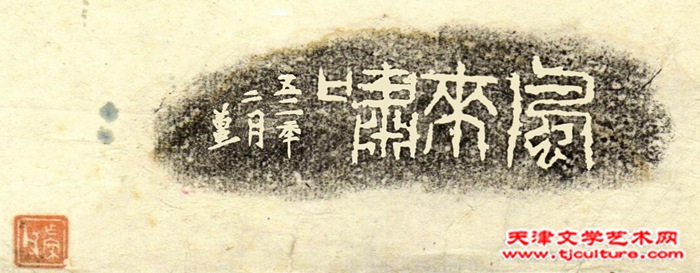 風来嘯
五二年
二月
堇
天津文学艺术网
www.tjculture.com